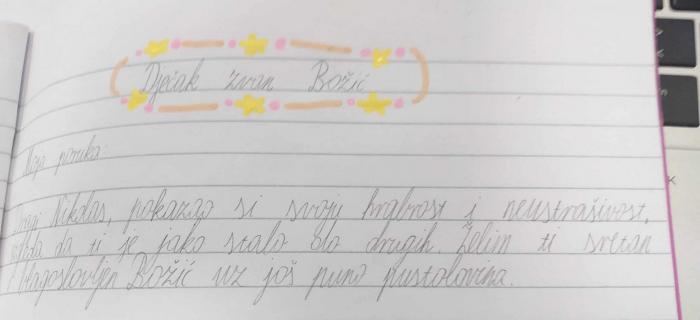 Dječak zvan Božić
Moja poruka:
Dragi Nikolas, pokazao si svoju hrabrost i neustrašivost,
da ti je jako stalo do drugih. Želim ti sretan
i blagoslovljen Božić uz još puno pustolovina.